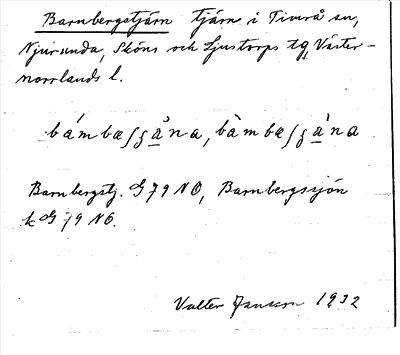 Barnbergstjärn tjärn i Timrå sn,
Njurunda, Sköns och Ljustorps tg Väster-
norrlands l.
bámbæʃʒä̀na, bàmbæʃʒä̀na
Barnbergstj. G79NO, Barnbergssjön
k G79NO.
Valter Jansson 1932